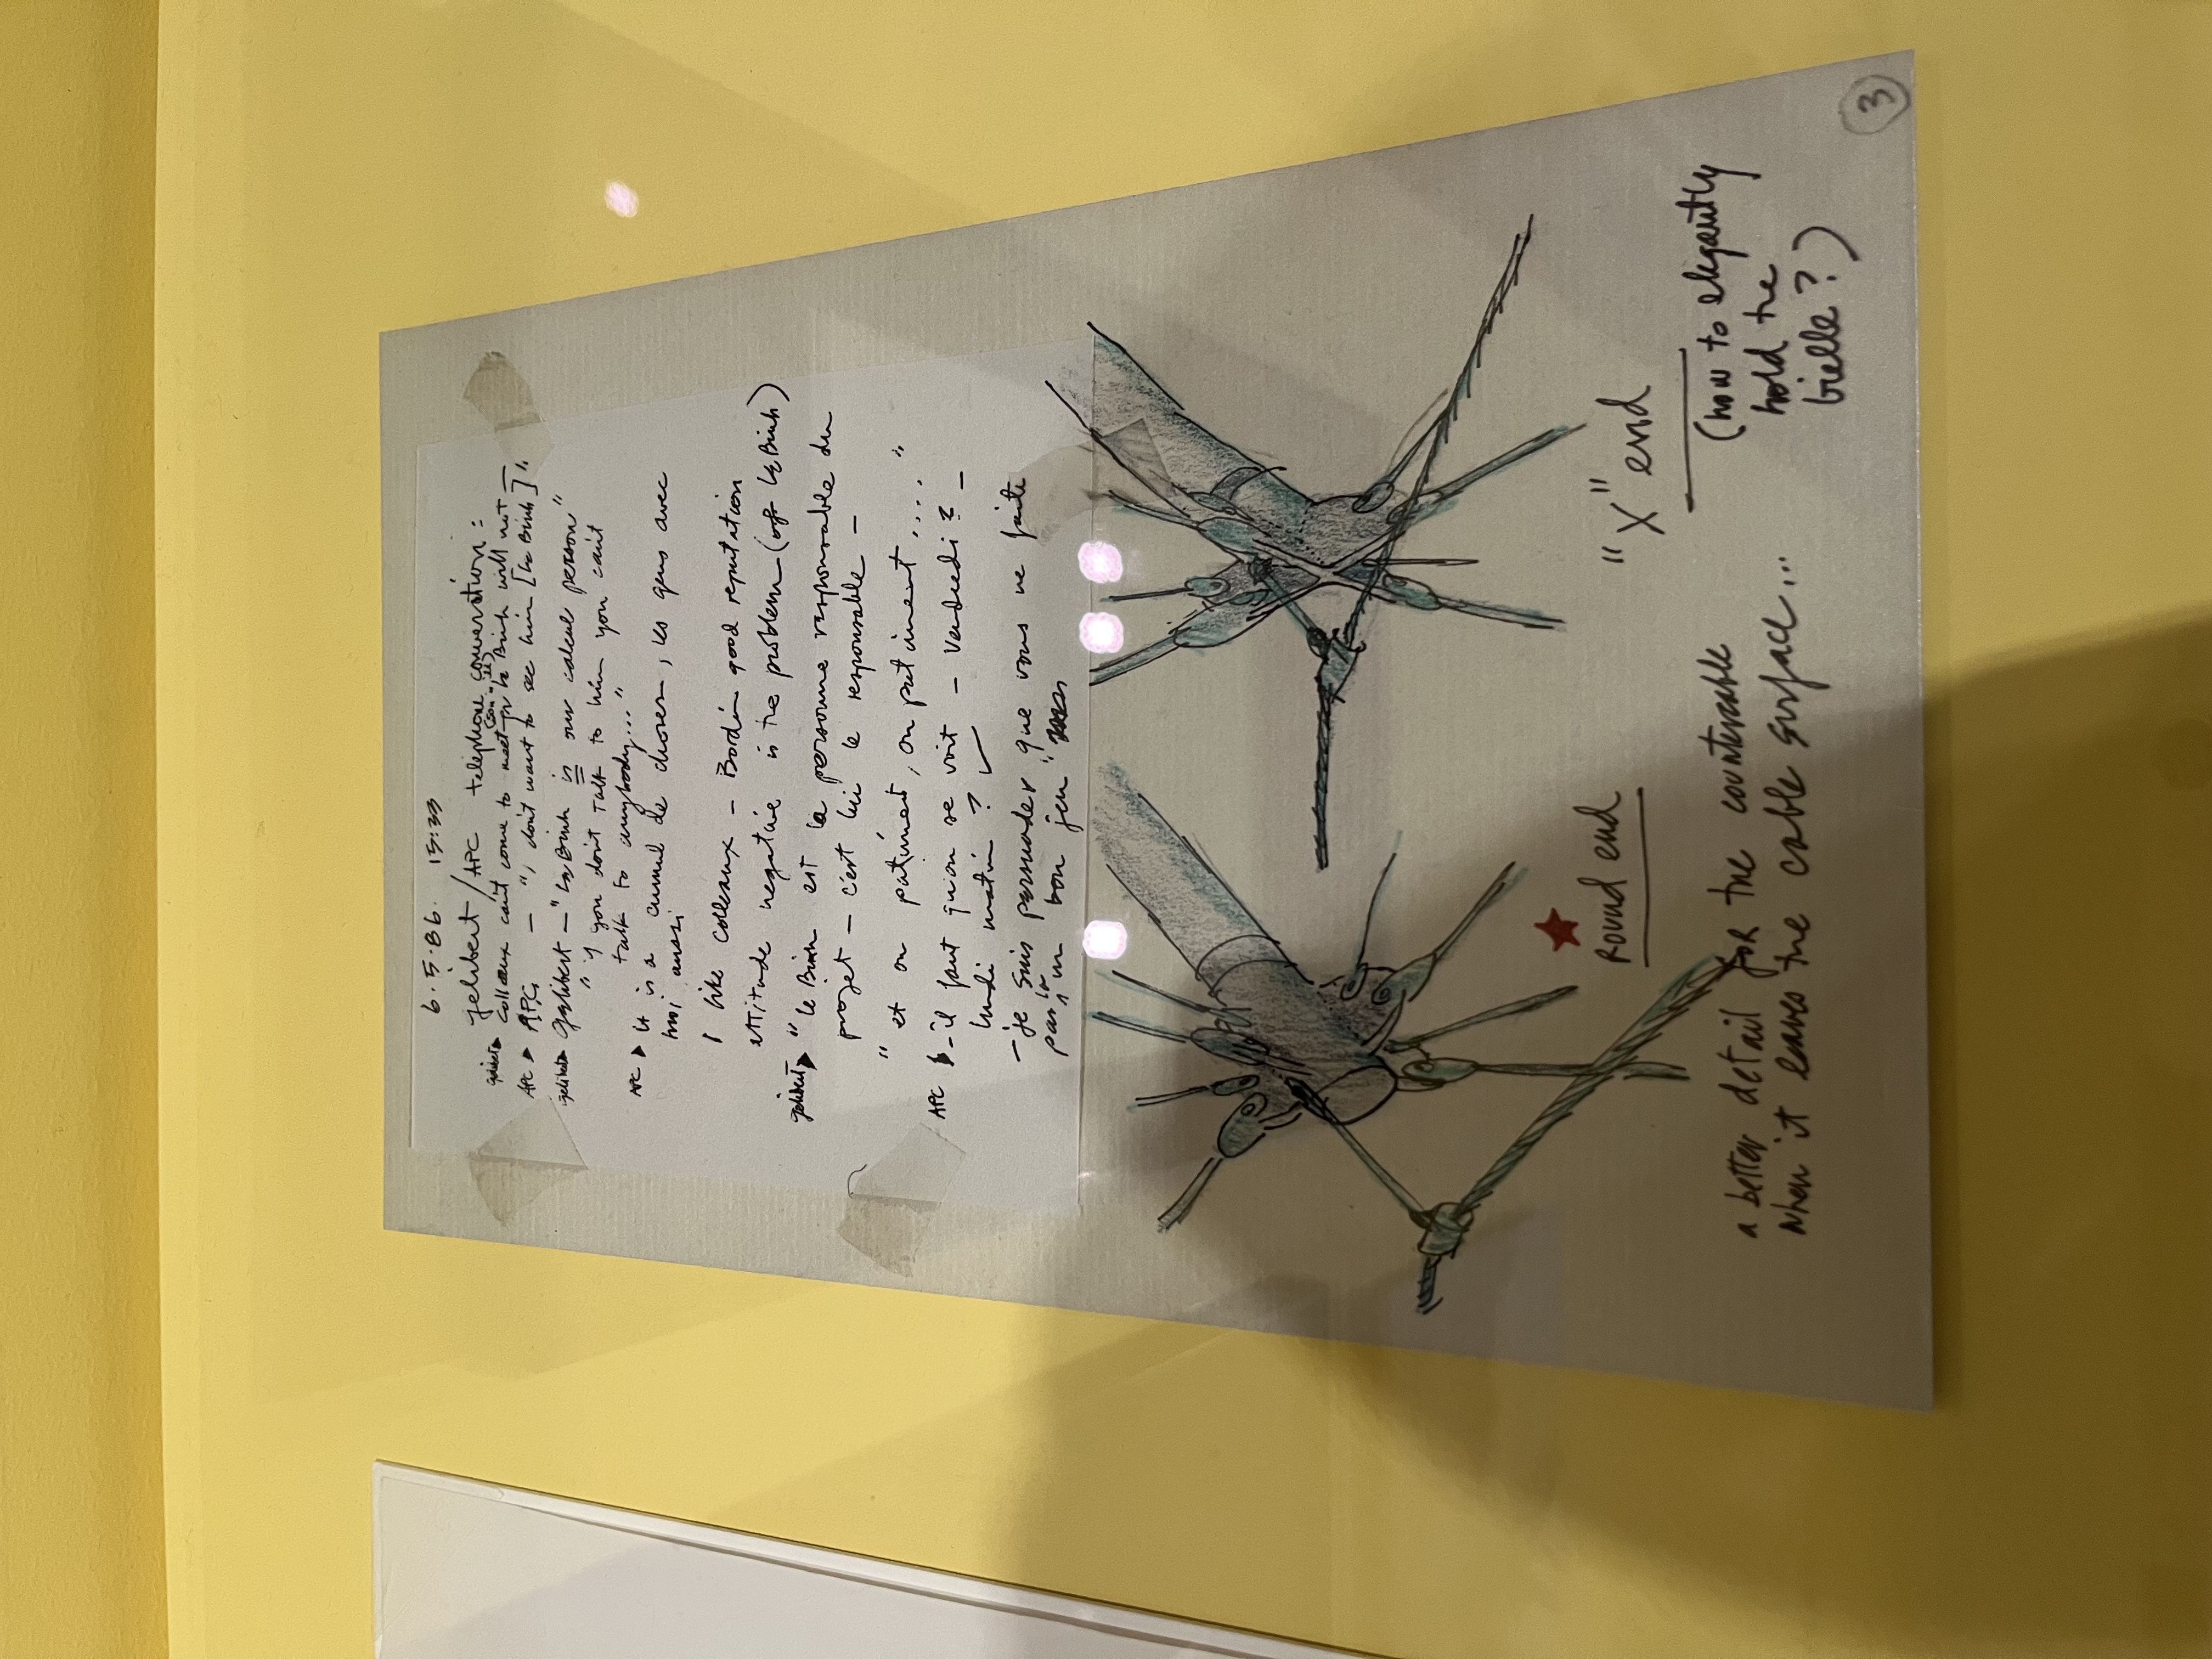 6.5.86. 15:33
gelibert/APC telephone conversation:
gelibert ▸ Colleaux can't come to meet Le Binh will not —
APC ▸ APC — ", don't want to see him [Le Binh]".
gelibert ▸ gelibert — "Le Binh is our calcul person"
" if you don't talk to him you can't
talk to anybody..."
APC ▸ it is a cumul de choses, les gens avec
moi aussi
I like Colleaux — Bordin good reputation
attitude negative is the problem (of Le Binh)
gelibert ▸ " Le Binh est la personne responsable du
projet — c'est lui le responsable —
" et on patiment, on patiment .... "
APC ▸ — il faut qu'on se voit — vendredi? —
lundi matin ? ✓
— je suis persuader "que vous ne faite
pas un bon jeu"
★
Round end
"X" end
(how to elegantly
hold the
bielle?)
a better detail for the countercable
when it leaves the cable surface...
3